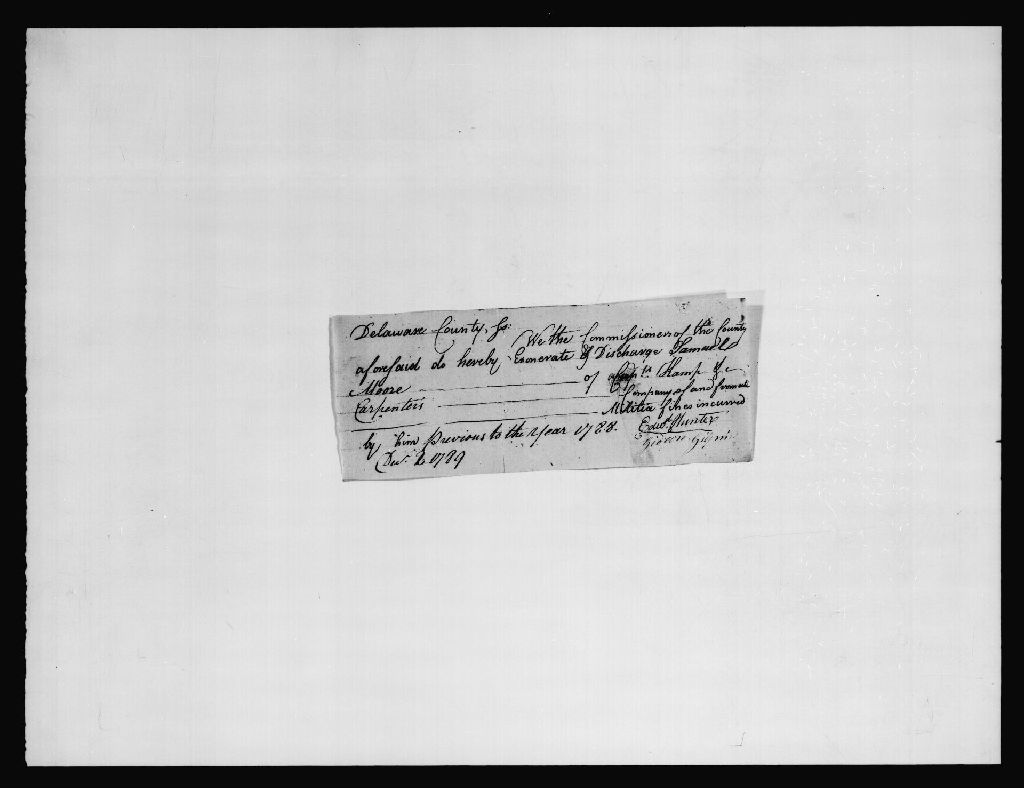 Delaware County, Ss:
We the Commissioners of the County
aforesaid do hereby Exonerate & Discharge Samuel
Moore of Capt
Carpenters Company of and from all
Militia fines incurred
by him Previous to the Year 1788.
1789 Edwd. Hunter
Gideon